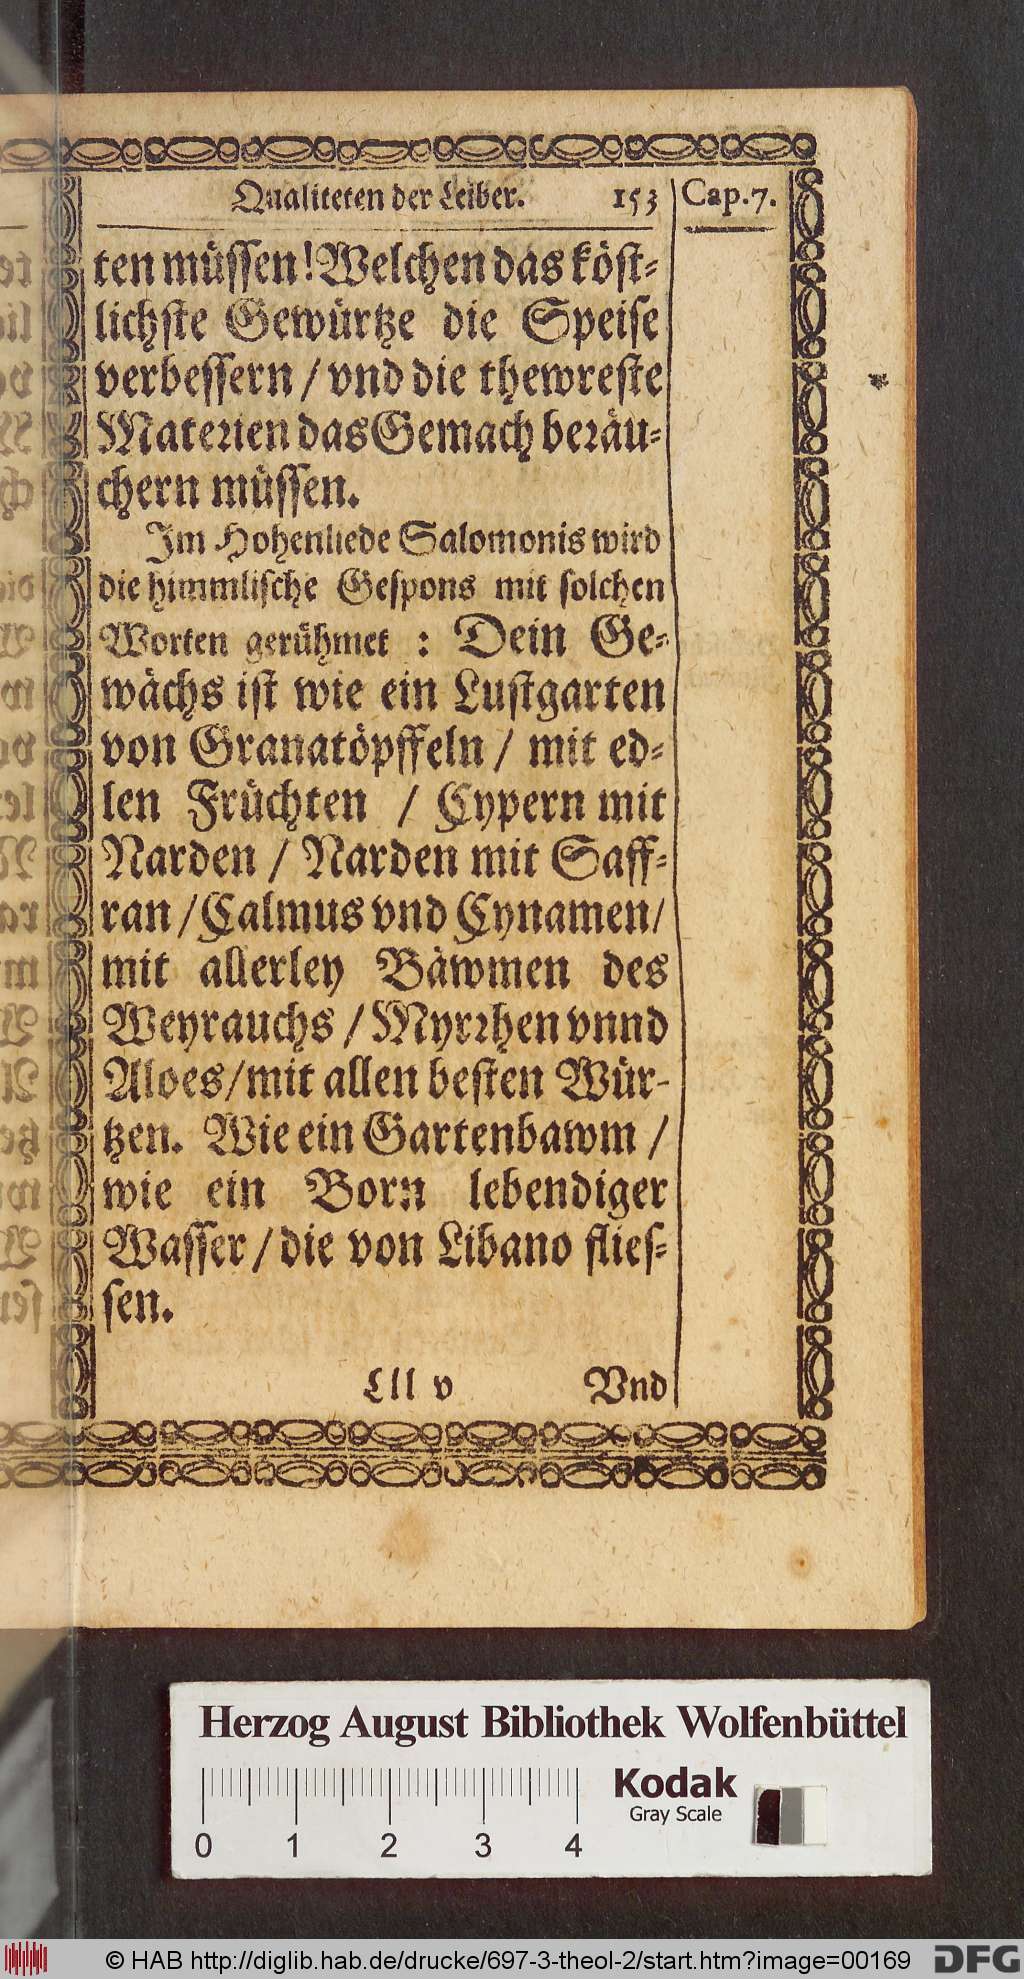 Qualiteten der Leiber. 153 Cap. 7.
ten müssen! Welchen das köst-
lichste Gewürtze die Speise
verbessern / vnd die thewreste
Materien das Gemach beräu-
chern müssen.
Im Hohenliede Salomonis wird
die himmlische Gespons mit solchen
Worten gerühmet : Dein Ge-
wächs ist wie ein Lustgarten
von Granatöpffeln / mit ed-
len Früchten / Cypern mit
Narden / Narden mit Saff-
ran / Calmus vnd Cynamen /
mit allerley Bäwmen des
Weyrauchs / Myrrhen vnnd
Aloes / mit allen besten Wür-
tzen. Wie ein Gartenbawm /
wie ein Born lebendiger
Wasser / die von Libano flies-
sen.
Lll v Vnd
Herzog August Bibliothek Wolfenbüttel
Kodak
Gray Scale
0 1 2 3 4
© HAB http://diglib.hab.de/drucke/697-3-theol-2/start.htm?image=00169 DFG